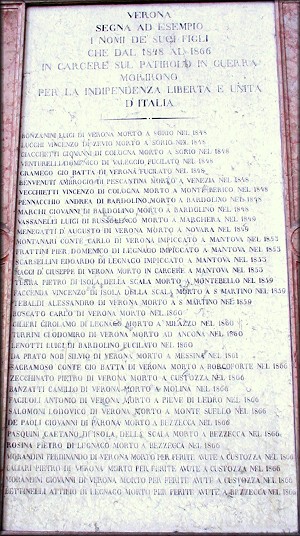 VERONA
SEGNA AD ESEMPIO
I NOMI DE' SUOI FIGLI
CHE DAL 1848 AL 1866
IN CARCERE SUL PATIBOLO IN GUERRA
MORIRONO
PER LA INDIPENDENZA LIBERTÀ E UNITÀ
D'ITALIA
BONZANINI LUIGI DI VERONA MORTO A SORIO NEL 1848
LUCCHI VINCENZO DI ZEVIO MORTO A SORIO NEL 1848
GIACCHETTI GIOVANNI DI COLOGNA MORTO A SORIO NEL 1848
VENTURELLI DOMENICO DI VALEGGIO FUCILATO NEL 1848
GRAMEGO GIO BATTA DI VERONA FUCILATO NEL 1848
BENVENUTI AMBROGIO DI PESCANTINA MORTO A VENEZIA NEL 1848
VECCHIETTI VINCENZO DI COLOGNA MORTO A MONTE BERICO NEL 1848
PENNACCHIO ANDREA DI BARDOLINO MORTO A BARDOLINO NEL 1848
MARCHI GIOVANNI DI BARDOLINO MORTO A BARDOLINO NEL 1848
VASSANELI LUIGI DI BUSSOLENGO MORTO A MARGHERA NEL 1849
MENEGATTI D'AUGUSTO DI VERONA MORTO A NOVARA NEL 1849
MONTANARI CONTE CARLO DI VERONA IMPICCATO A MANTOVA NEL 1853
FRATTINI PIER DOMENICO DI LEGNAGO IMPICCATO A MANTOVA NEL 1853
SCARSELLINI DI LEGNAGO IMPICCATO A MANTOVA NEL 1853
DI GIUSEPPE DI VERONA MORTO IN CARCERE A MANTOVA NEL 1853
PIETRO DI ISOLA DELLA SCALA MORTO A MONTEBELLO NEL 1859
FACENDA VINCENZO DI ISOLA DELLA SCALA MORTO A S MARTINO NEL 1859
TEBALDI ALESSANDRO DI VERONA MORTO A S MARTINO NEL 1859
BUSCATO CARLO DI VERONA MORTO NEL 1860
GIROLAMO DI LEGNAGO MORTO A MILAZZO NEL 1860
DI VERONA MORTO AD ANCONA NEL 1860
LENOTTI LUIGI DI BARDOLINO FUCILATO NEL 1860
DA PRATO NOB SILVIO DI VERONA MORTO A MESSINA NEL 1861
SAGRAMOSO CONTE GIO BATTA DI VERONA MORTO A BORGOFORTE NEL 1866
ZECCHINATO PIETRO DI VERONA MORTO A CUSTOZZA NEL 1866
RANZATTI CAMILLO DI VERONA MORTO A MOLINA NEL 1866
ANTONIO DI VERONA MORTO A PIEVE DI LEDRO NEL 1866
SALOMONI LODOVICO DI VERONA MORTO A MONTE SUELLO NEL 1866
DE PAOLI GIOVANNI DI PARONA MORTO A BEZZECCA NEL 1866
PASQUINI GAETANO DI ISOLA DELLA SCALA MORTO A BEZZECCA NEL 1866
ROSINA PIETRO DI LEGNAGO MORTO A BEZZECCA NEL 1866
MORANDINI FERDINANDO DI VERONA MORTO PER FERITE AVUTE A CUSTOZZA NEL 1866
PIETRO DI VERONA MORTO PER FERITE AVUTE A CUSTOZZA NEL 1866
MORANDINI GIOVANNI DI VERONA MORTO PER FERITE AVUTE A CUSTOZZA NEL 1866
BETTINELLI ATTILIO DI LEGNAGO MORTO PER FERITE AVUTE A BEZZECCA NEL 1866